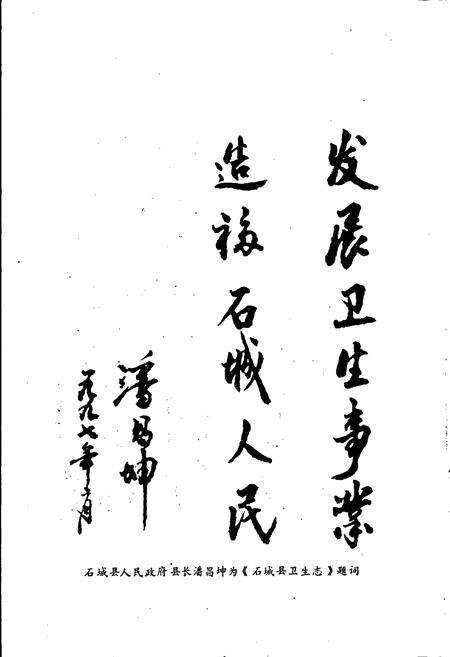 发展卫生事业
造福石城人民
潘昌坤
一九九七年二月
石城县人民政府县长潘昌坤为《石城县卫生志》题词